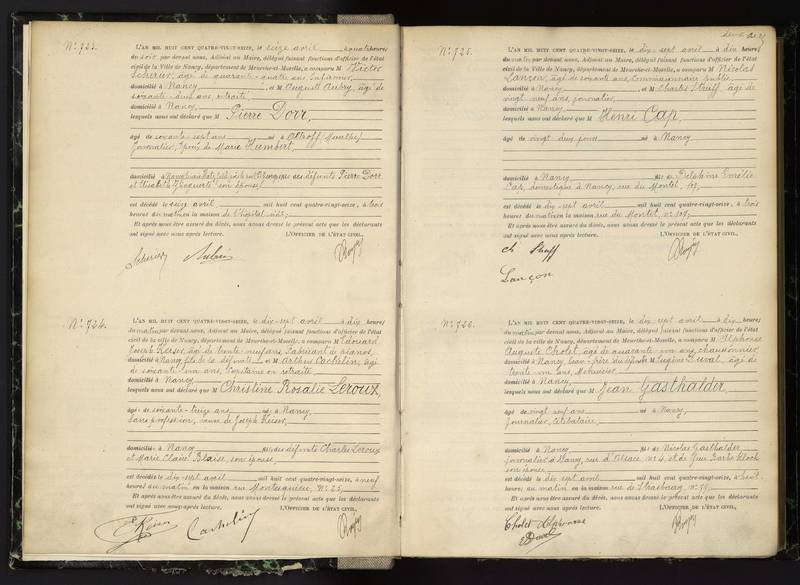 N° 723.
L'AN MIL HUIT CENT QUATRE-VINGT-SEIZE, le seize avril à quatre heures
du soir par devant nous, Adjoint au Maire, délégué faisant fonctions d'officier de l'état
civil de la Ville de Nancy, département de Meurthe-et-Moselle, a comparu M Victor
Scherier, âgé de quarante-quatre ans, Infirmier,
domicilié à Nancy, et M Auguste Aubry, âgé de
soixante-deux ans, retraité
domicilié à Nancy
lesquels nous ont déclaré que M Pierre Dorr,
âgé de soixante-sept ans né à Altroff (Meurthe)
Journalier, époux de Marie Humbert,
domicilié à Nancy fils des défunts Pierre Dorr
et Elisabeth son épouse;
est décédé le seize avril mil huit cent quatre-vingt-seize, à trois
heures du matin en la maison de l'hôpital civil;
Et après nous être assuré du décès, nous avons dressé le présent acte que les déclarants
ont signé avec nous après lecture. L'OFFICIER DE L'ÉTAT CIVIL,
N° 724.
L'AN MIL HUIT CENT QUATRE-VINGT-SEIZE, le dix-sept avril à dix heures
du matin par devant nous, Adjoint au Maire, délégué faisant fonctions d'officier de l'état
civil de la ville de Nancy, département de Meurthe-et-Moselle, a comparu M Edouard
Joseph Keiser, âgé de trente-neuf ans, Fabricant de pianos,
domicilié à Nancy, fils de la défunte et M Arthur Cachelin, âgé
de soixante-un ans, Capitaine en retraite
domicilié à Nancy
lesquels nous ont déclaré que M Christine Rosalie Leroux,
âgé de soixante-treize ans né à Nancy,
Sans profession, veuve de Joseph Keiser,
domicilié à Nancy fille des défunts Charles Leroux
et Marie Claire Blaise, son épouse;
est décédée le dix-sept avril mil huit cent quatre-vingt-seize, à neuf
heures du matin en la maison rue Montesquieu, N° 25;
Et après nous être assuré du décès, nous avons dressé le présent acte que les déclarants
ont signé avec nous après lecture. L'OFFICIER DE L'ÉTAT CIVIL,
E Keiser Cachelin
N° 725.
L'AN MIL HUIT CENT QUATRE-VINGT-SEIZE, le dix-sept avril à dix heures
du matin par devant nous, Adjoint au Maire, délégué faisant fonctions d'officier de l'état
civil de la Ville de Nancy, département de Meurthe-et-Moselle, a comparu M Nicolas
Lançon, âgé de soixante ans, Commissionnaire public,
domicilié à Nancy et M Charles Streiff, âgé de
vingt-neuf ans, journalier,
domicilié à Nancy
lesquels nous ont déclaré que M Henri Cap,
âgé de vingt deux jours né à Nancy
domicilié à Nancy fils de Delphine Emélie
Cap, domestique à Nancy, rue du Montet, 103,
est décédé le dix-sept avril mil huit cent quatre-vingt-seize, à trois
heures du matin en la maison rue du Montet, n° 103;
Et après nous être assuré du décès, nous avons dressé le présent acte que les déclarants
ont signé avec nous après lecture. L'OFFICIER DE L'ÉTAT CIVIL,
Ch Streiff
Lançon
N° 726.
L'AN MIL HUIT CENT QUATRE-VINGT-SEIZE, le dix-sept avril à dix heures
du matin par devant nous, Adjoint au Maire, délégué faisant fonctions d'officier de l'état
civil de la ville de Nancy, département de Meurthe-et-Moselle, a comparu M Alphonse
Auguste Cholet, âgé de quarante-un ans, chaussonnier,
domicilié à Nancy, beau-frère du défunt et M Eugène Duval, âgé de
trente-un ans, Menuisier,
domicilié à Nancy
lesquels nous ont déclaré que M Jean Gasthalder,
âgé de vingt neuf ans né à Nancy,
journalier, célibataire,
domicilié à Nancy fils de Nicolas Gasthalder,
journalier à Nancy, rue d'Alsace n° 4, et de Barbe
son épouse;
est décédé le dix sept avril mil huit cent quatre-vingt-seize, à huit
heures du matin en la maison rue de Strasbourg
Et après nous être assuré du décès, nous avons dressé le présent acte que les déclarants
ont signé avec nous après lecture. L'OFFICIER DE L'ÉTAT CIVIL,
Cholet Alphonse
E Duval